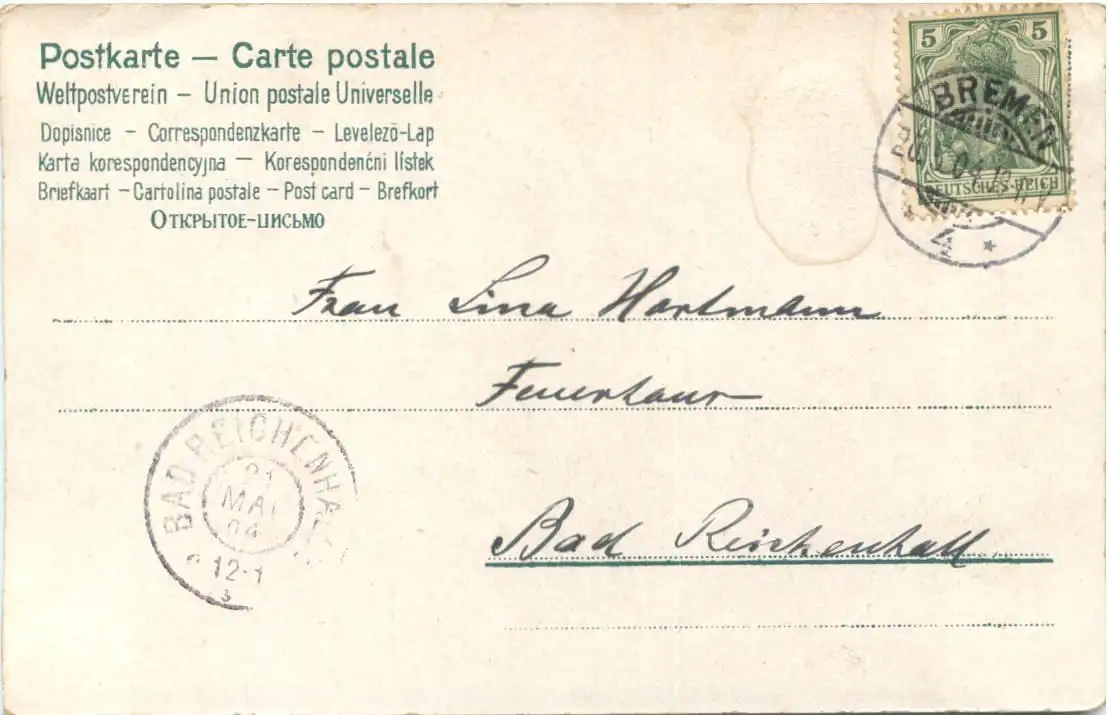 Postkarte — Carte postale
Weltpostverein — Union postale Universelle
Dopisnice — Correspondenzkarte — Levelező-Lap
Karta korespondencyjna — Korespondenčni lístek
Briefkaart — Cartolina postale — Post card — Brefkort
Открытое-письмо
5 5
BREMEN
DEUTSCHES REICH
4 *
Frau Lina Hartmann
Bad Reichenhall
BAD REICHENHA
21
MAI
04
12-1
3